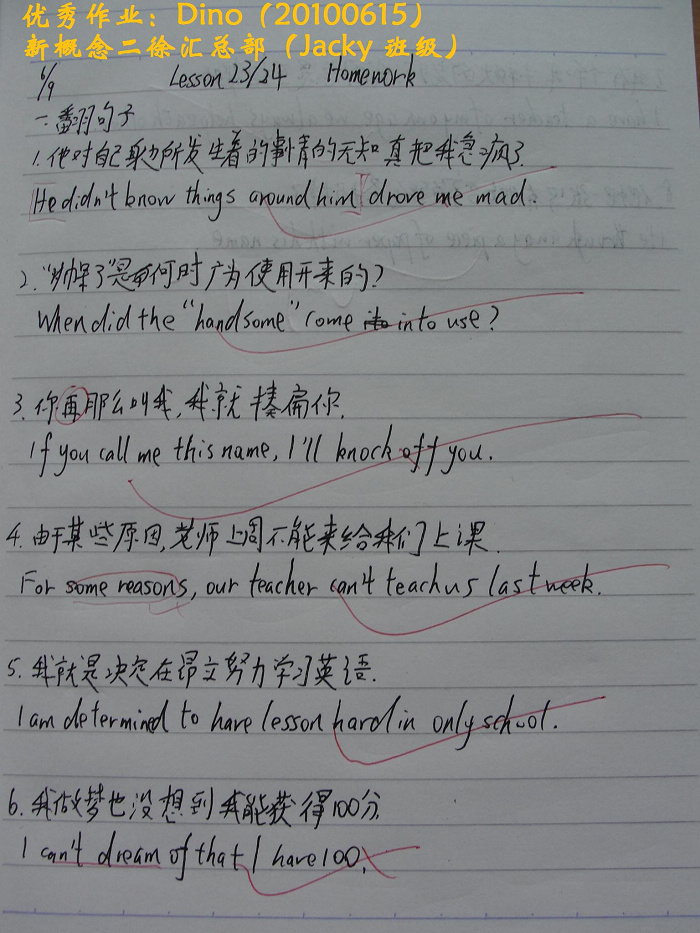 优秀作业：Dino（20100615）
新概念二徐汇总部（Jacky 班级）
6/9 Lesson 23/24 Homework
一.翻句子
1.他对自己身边所发生着的事情的无知真把我急疯了.
He didn't know things around him drove me mad.
2."帅呆了"是何时广为使用开来的?
When did the "handsome" come into use?
3.你再那么叫我,我就揍扁你.
If you call me this name, I'll knock off you.
4.由于某些原因,老师上周不能来给我们上课.
For some reasons, our teacher can't teach us last week.
5.我就是决定在昂立努力学习英语.
I am determined to have lesson hard in only school.
6.我做梦也没想到我能获得100分.
I can't dream of that I have 100.